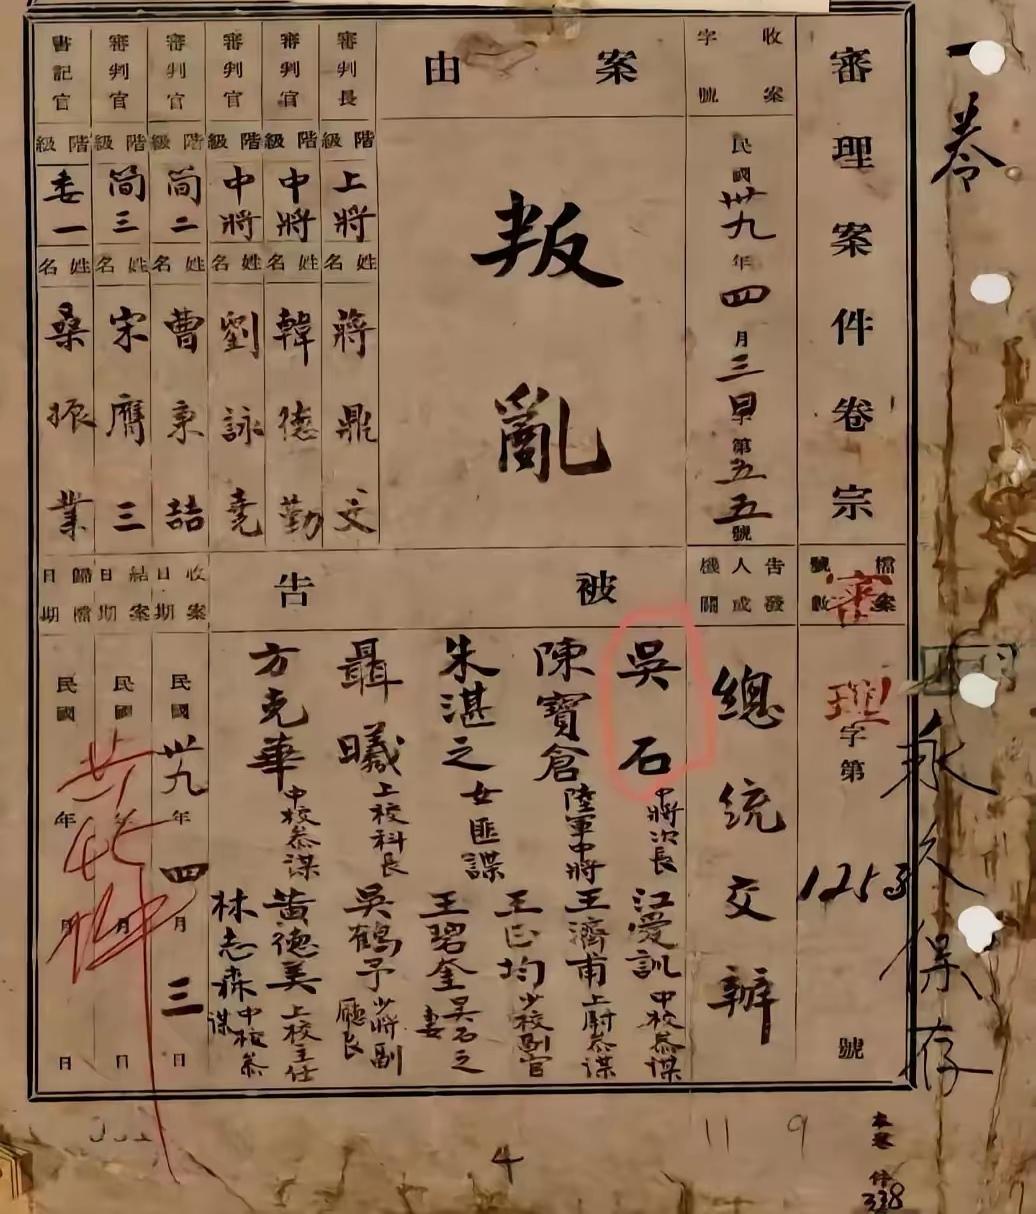 一卷
永久保存
審理案件卷宗
檔案號數
審理字第1253號
收案字號
民國卅九年四月三日
第五五號
告發人或機關
總統交辦
案由
叛亂
被告
吳石 中將次長
陳寶倉 陸軍中將
朱湛之 女匪諜
聶曦 上校科長
方克華 中校參謀
江愛訓 中校參謀
王濟甫 上尉參謀
王正均 少校副官
王碧奎 吳石之妻
吳鶴予 少將副廳長
黃德美 上校主任
林志森 中校參謀
審判長
階級
上將
姓名
蔣鼎文
審判官
階級
中將
姓名
韓德勤
審判官
階級
中將
姓名
劉詠堯
審判官
階級
简二
姓名
曹秉喆
審判官
階級
简三
姓名
宋膺三
書記官
階級
委一
姓名
桑振業
收案日期
民國卅九年四月三日
結案日期
民國年月日
歸檔日期
民國年月日
4
11 9
338